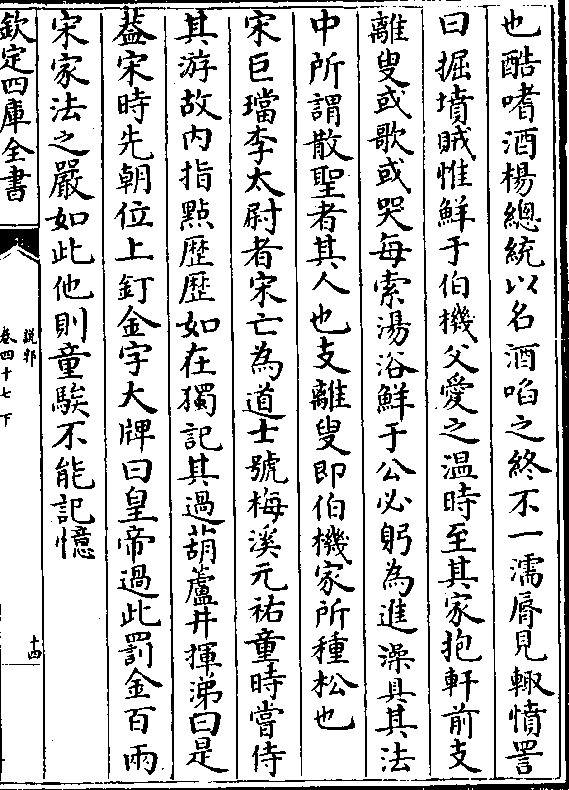 也酷嗜酒楊總統以名酒啗之終不一濡脣見輙憤詈
曰掘墳賊惟鮮于伯機父愛之温時至其家抱軒前支
離叟或歌或哭每索湯浴鮮于公必躬為進澡具其法
中所謂散聖者其人也支離叟即伯機家所種松也
宋巨璫李太尉者宋亡為道士號梅溪元祐童時嘗侍
其游故内指點歴歴如在獨記其過葫蘆井揮涕曰是
葢宋時先朝位上釘金字大牌曰皇帝過此罰金百兩
宋家法之嚴如此他則童騃不能記憶
欽定四庫全書
説郛
卷四十七下
十四